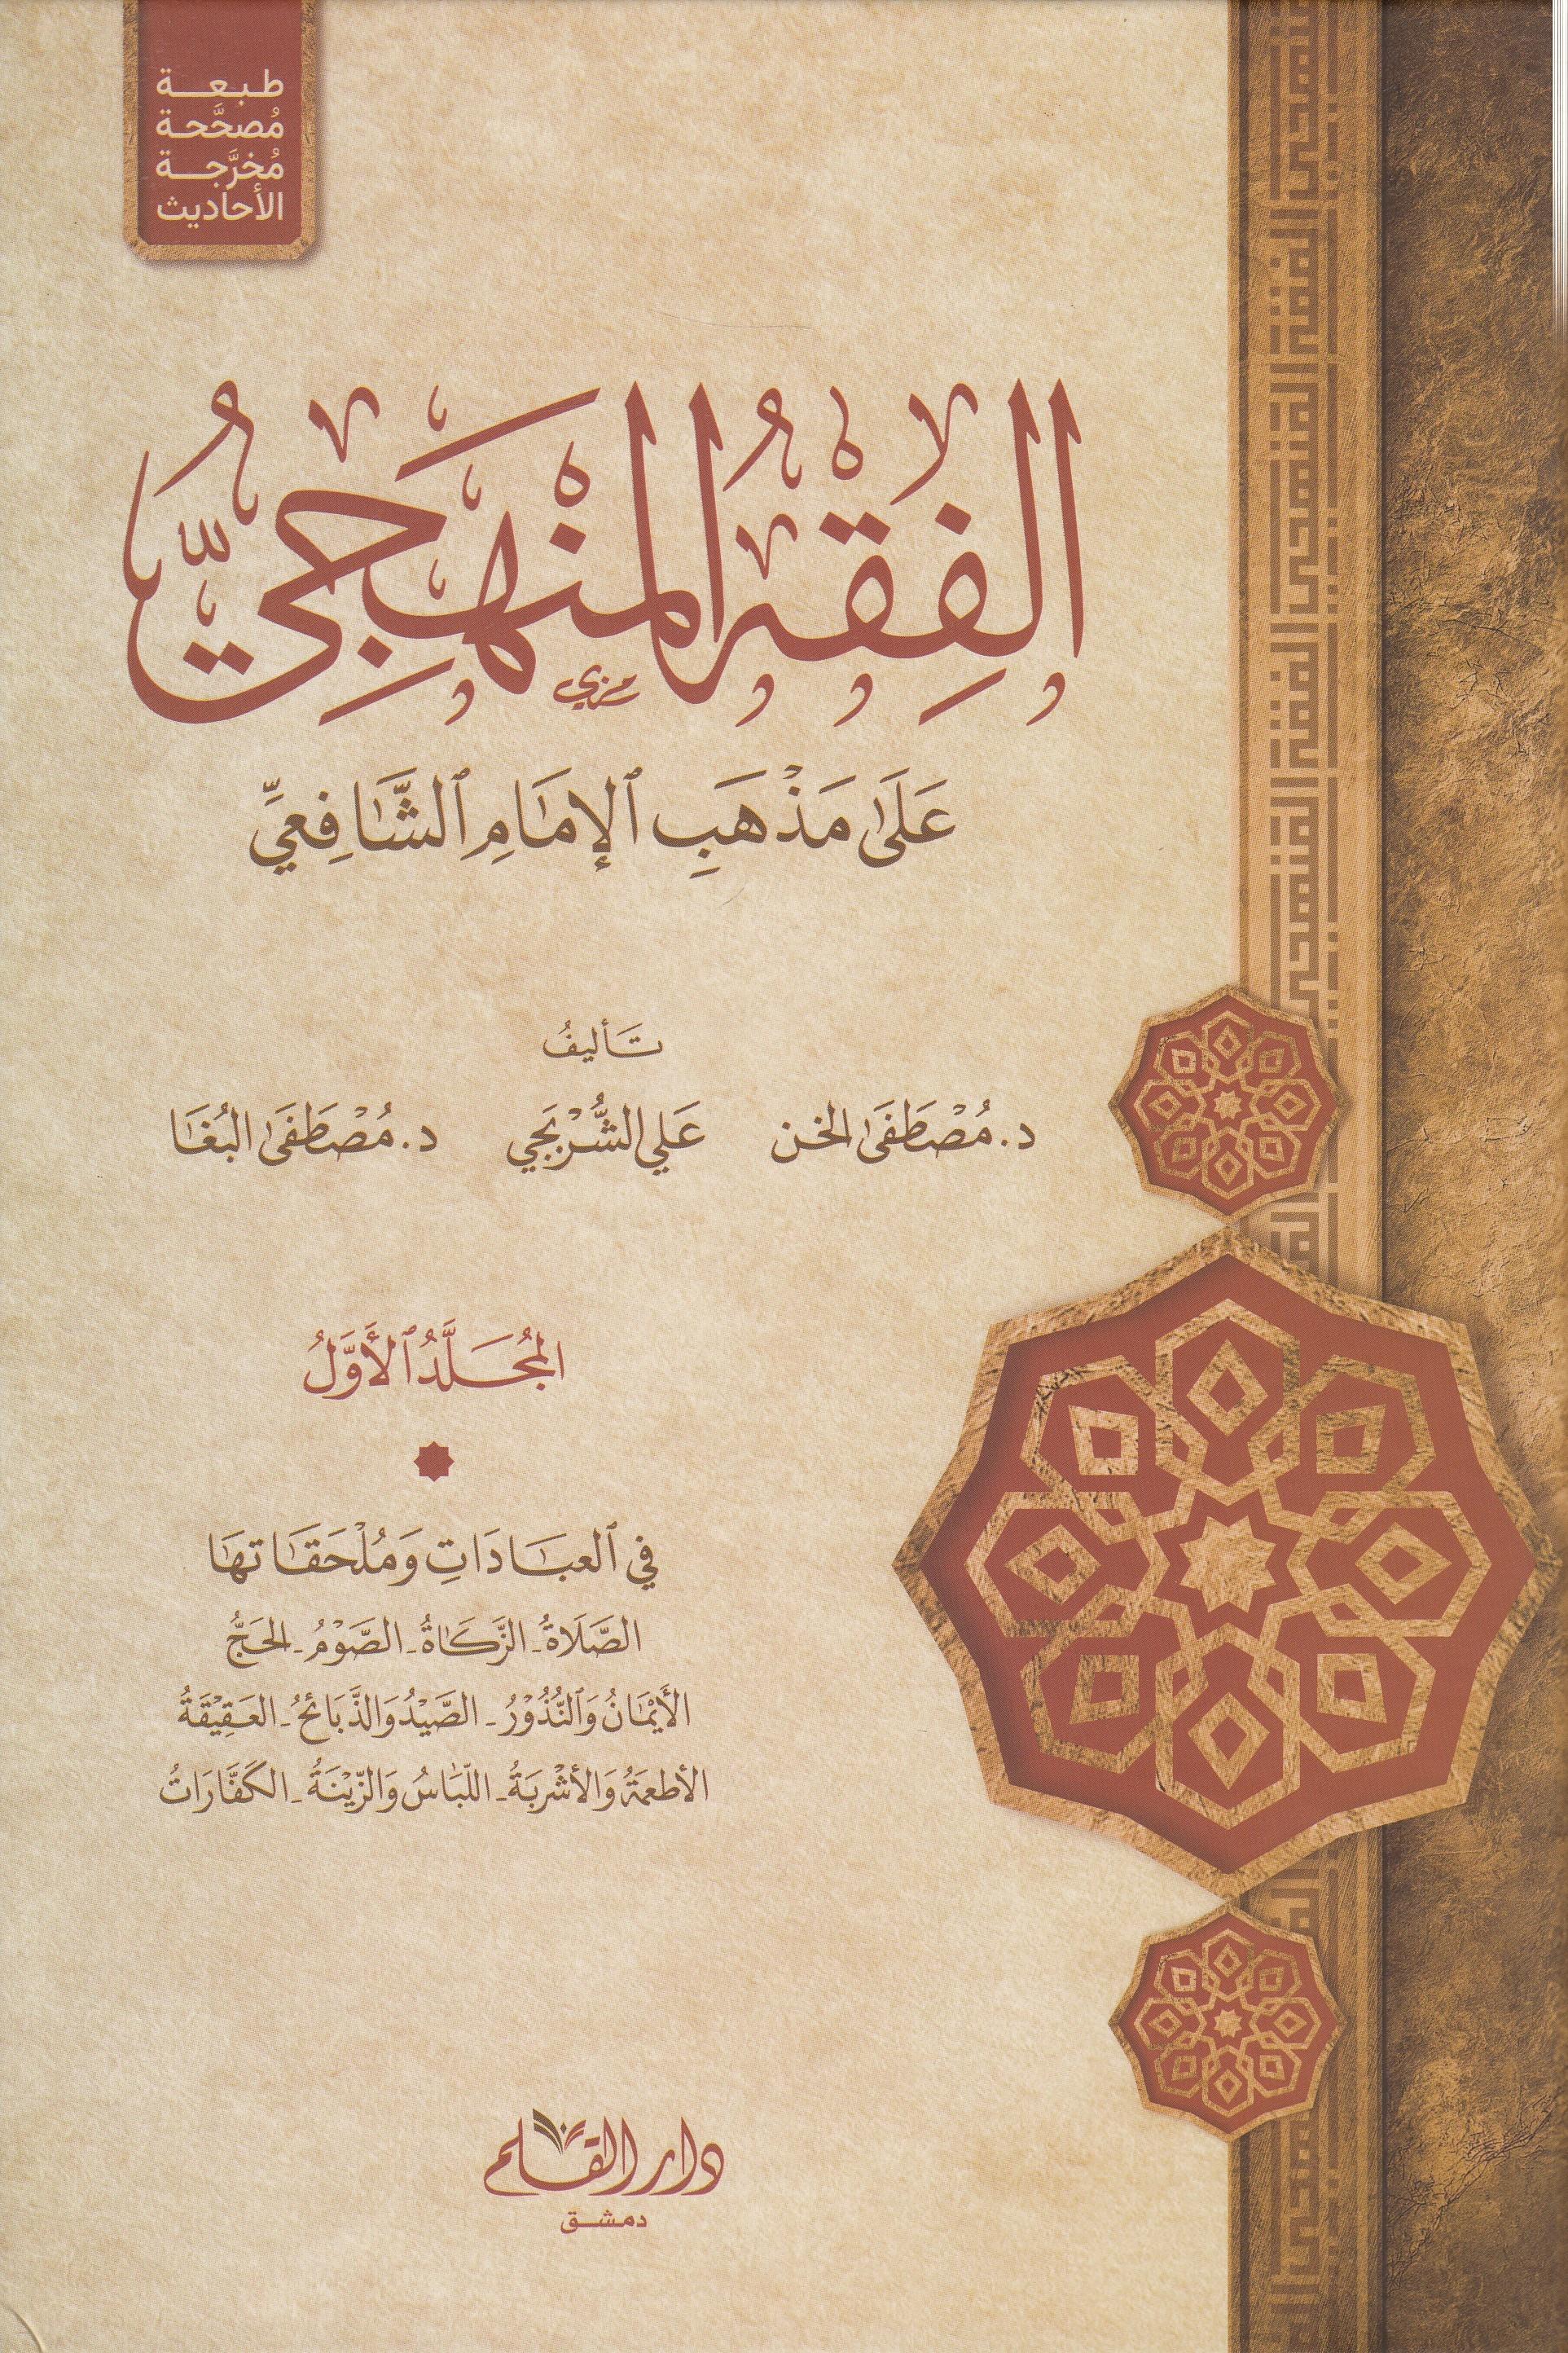 طبعة
مُصحَّحة
مُخرَّجة
الأحاديث
الفِقْهُ المَنْهَجِيُّ
عَلَىٰ مَذْهَبِ ٱلإِمَامِ ٱلشَّافِعِيِّ
تَأليفُ
د. مُصْطَفَىٰ الخن عَلي الشُّرْبَجي د. مُصْطَفَىٰ البُغَا
المُجَلَّدُ ٱلأَوَّلُ
في ٱلعبَادَاتِ وَمُلْحَقَاتهَا
الصَّلَاةُ - الزَّكَاةُ - الصَّوْمُ - الحَجُّ
الأَيْمَانُ وَٱلنُّذُوْرُ - الصَّيْدُ وَالذَّبَائحُ - العَقِيْقَةُ
الأطعمَةُ وَالأشْربَةُ - اللّبَاسُ وَالزّيْنَةُ - الكَفَّارَاتُ
دار القلم
دمشق